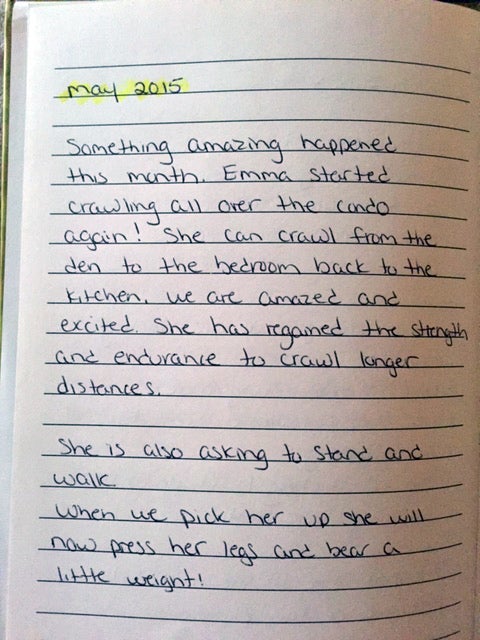 May 2015
Something amazing happened
this month. Emma started
crawling all over the condo
again! She can crawl from the
den to the bedroom back to the
kitchen. We are amazed and
excited. She has regained the strength
and endurance to crawl longer
distances.
She is also asking to stand and
walk.
When we pick her up she will
now press her legs and bear a
little weight!